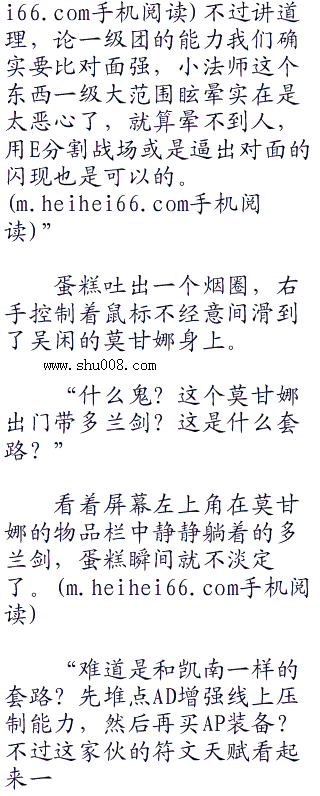 i66.com手机阅读)不过讲道
理，论一级团的能力我们确
实要比对面强，小法师这个
东西一级大范围眩晕实在是
太恶心了，就算晕不到人，
用E分割战场或是逼出对面的
闪现也是可以的。
(m.heihei66.com手机阅
读)”
蛋糕吐出一个烟圈，右
手控制着鼠标不经意间滑到
了吴闲的莫甘娜身上。
www.shu008.com
“什么鬼？这个莫甘娜
出门带多兰剑？这是什么套
路？”
看着屏幕左上角在莫甘
娜的物品栏中静静躺着的多
兰剑，蛋糕瞬间就不淡定
了。(m.heihei66.com手机阅
读)
“难道是和凯南一样的
套路？先堆点AD增强线上压
制能力，然后再买AP装备？
不过这家伙的符文天赋看起
来一